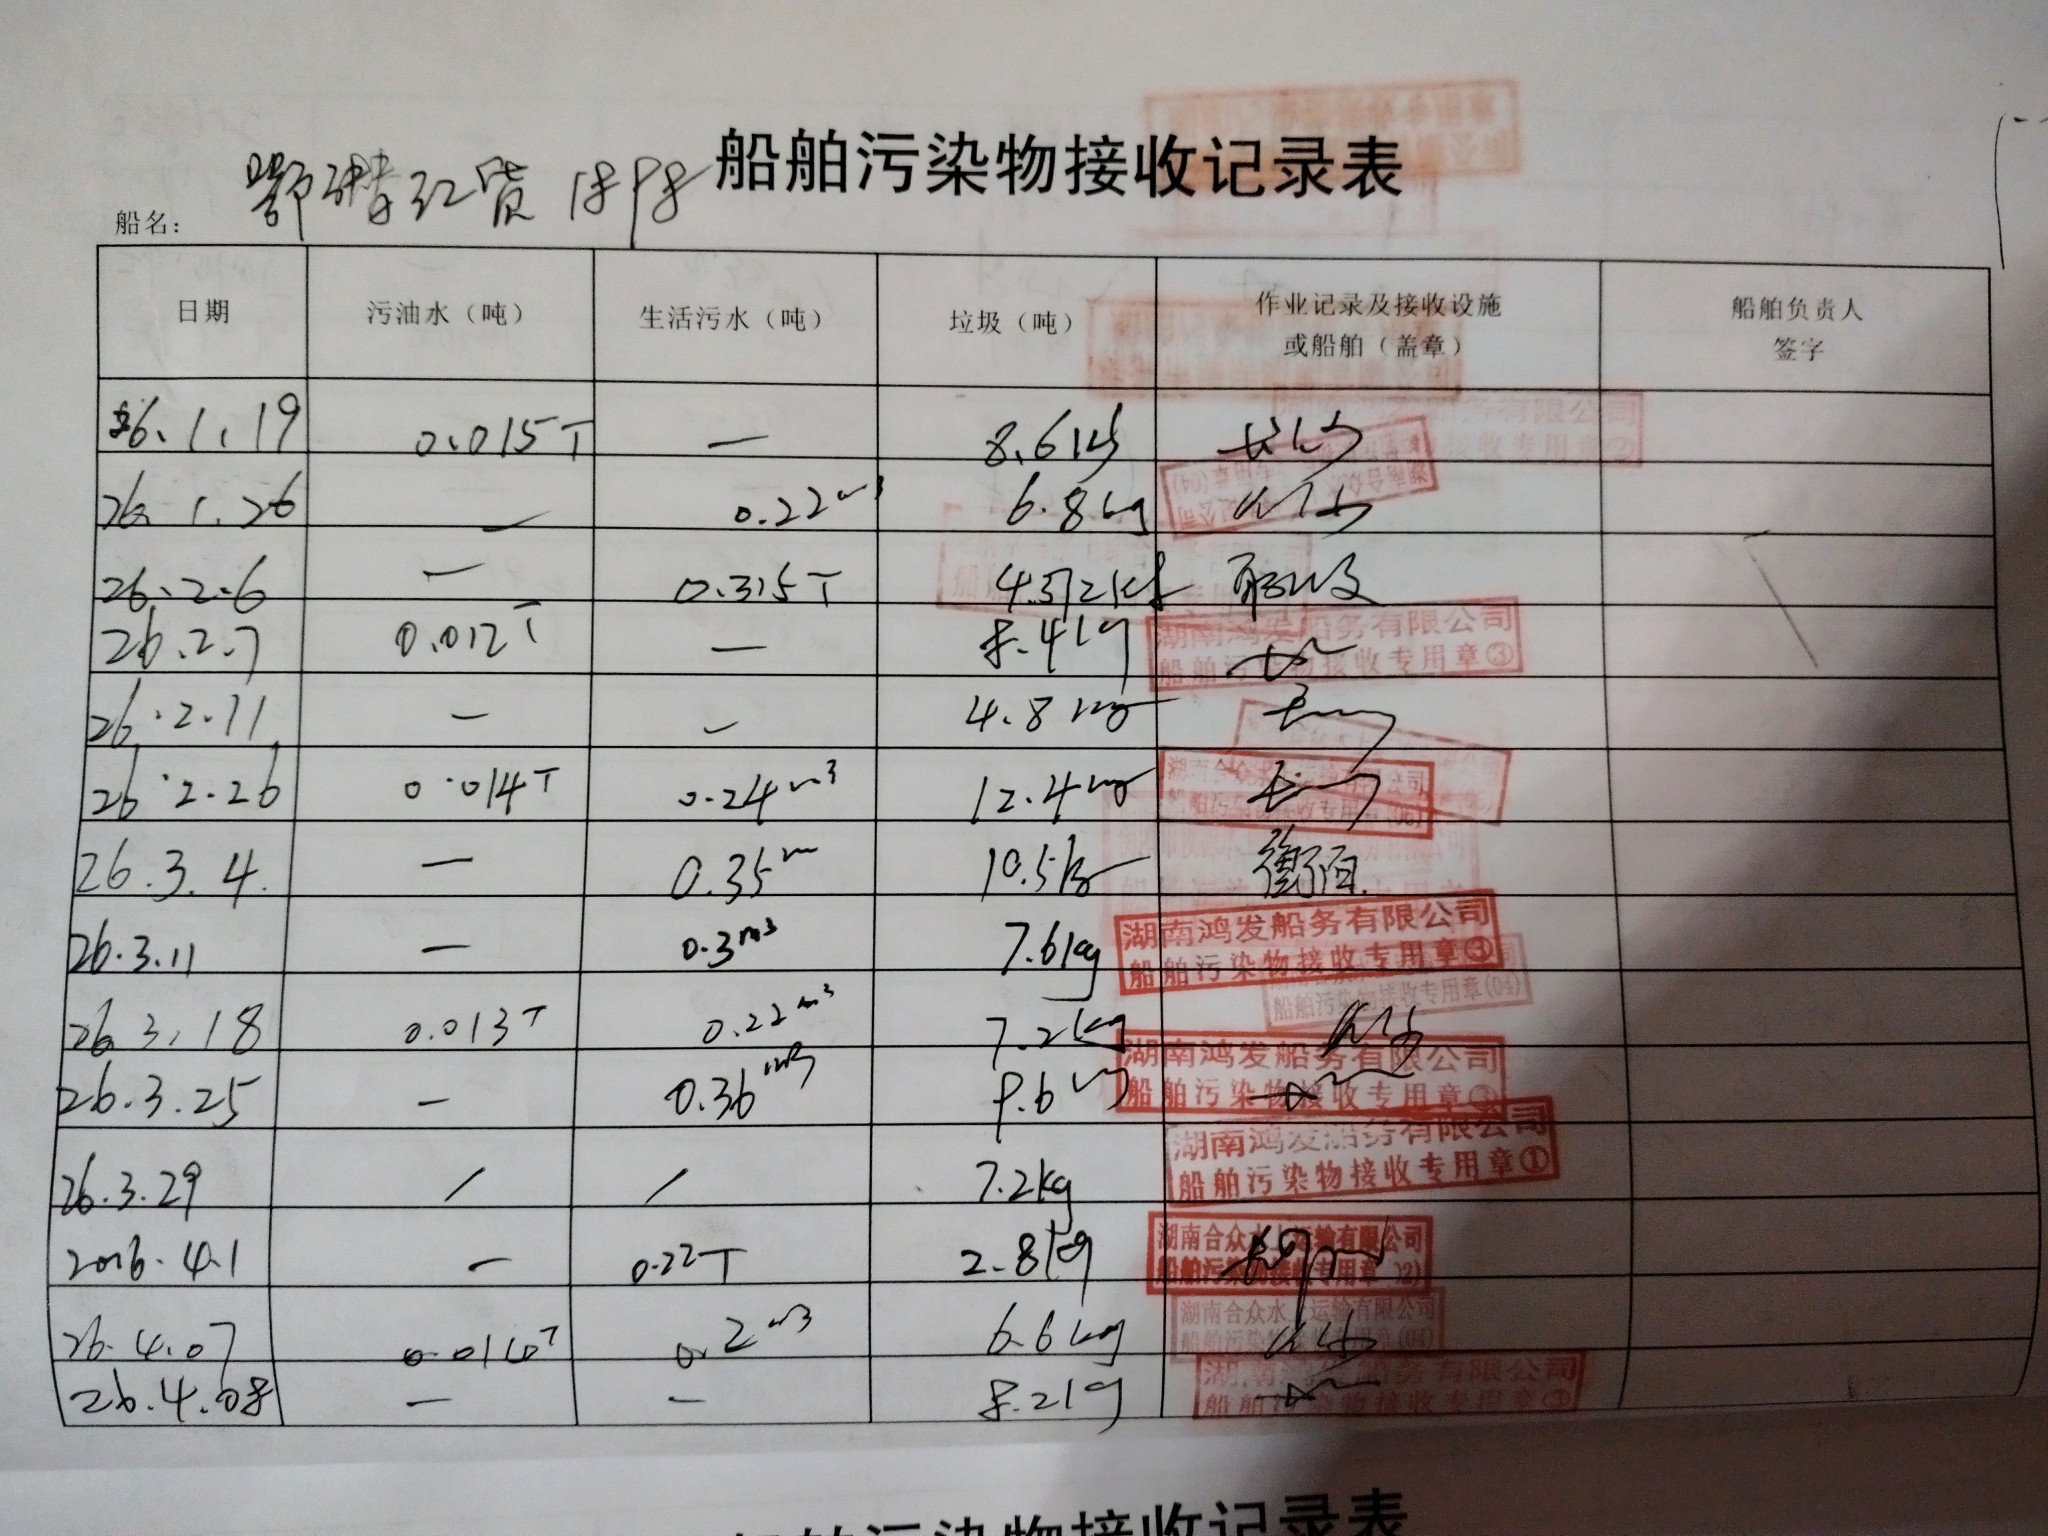 船舶污染物接收记录表
船名：
日期 污油水（吨） 生活污水（吨） 垃圾（吨） 作业记录及接收设施或船舶（盖章） 船舶负责人签字
26.1.19 0.015T — 8.6kg 长沙
26.1.26 — 0.22m³ 6.8kg 长沙
26.2.6 — 0.315T
26.2.7 0.012T — 8.4kg 湖南鸿发船务有限公司 船舶污染物接收专用章③
26.2.11 — — 4.8kg
26.2.26 0.014T 0.24m³ 12.4kg
26.3.4. — 0.35m 10.5kg 衡阳.
26.3.11 — 0.3m³ 7.6kg 湖南鸿发船务有限公司 船舶污染物接收专用章③
26.3.18 0.013T 0.22m³ 7.2kg 长沙 船舶污染物接收专用章(04)
26.3.25 — 0.36m³ 9.6kg 湖南鸿发船务有限公司 船舶污染物接收专用章
26.3.29 / / 7.2kg 湖南鸿发船务有限公司 船舶污染物接收专用章①
2026.4.1 — 0.22T 2.8kg 湖南合众水上运输有限公司 船舶污染物接收专用章
26.4.07 0.2m³ 6.6kg 长沙 湖南合众水上运输有限公司 船舶污染物接收专用章(04)
26.4.08 — — 8.2kg 湖南鸿发船务有限公司 船舶污染物接收专用章③
船舶污染物接收记录表